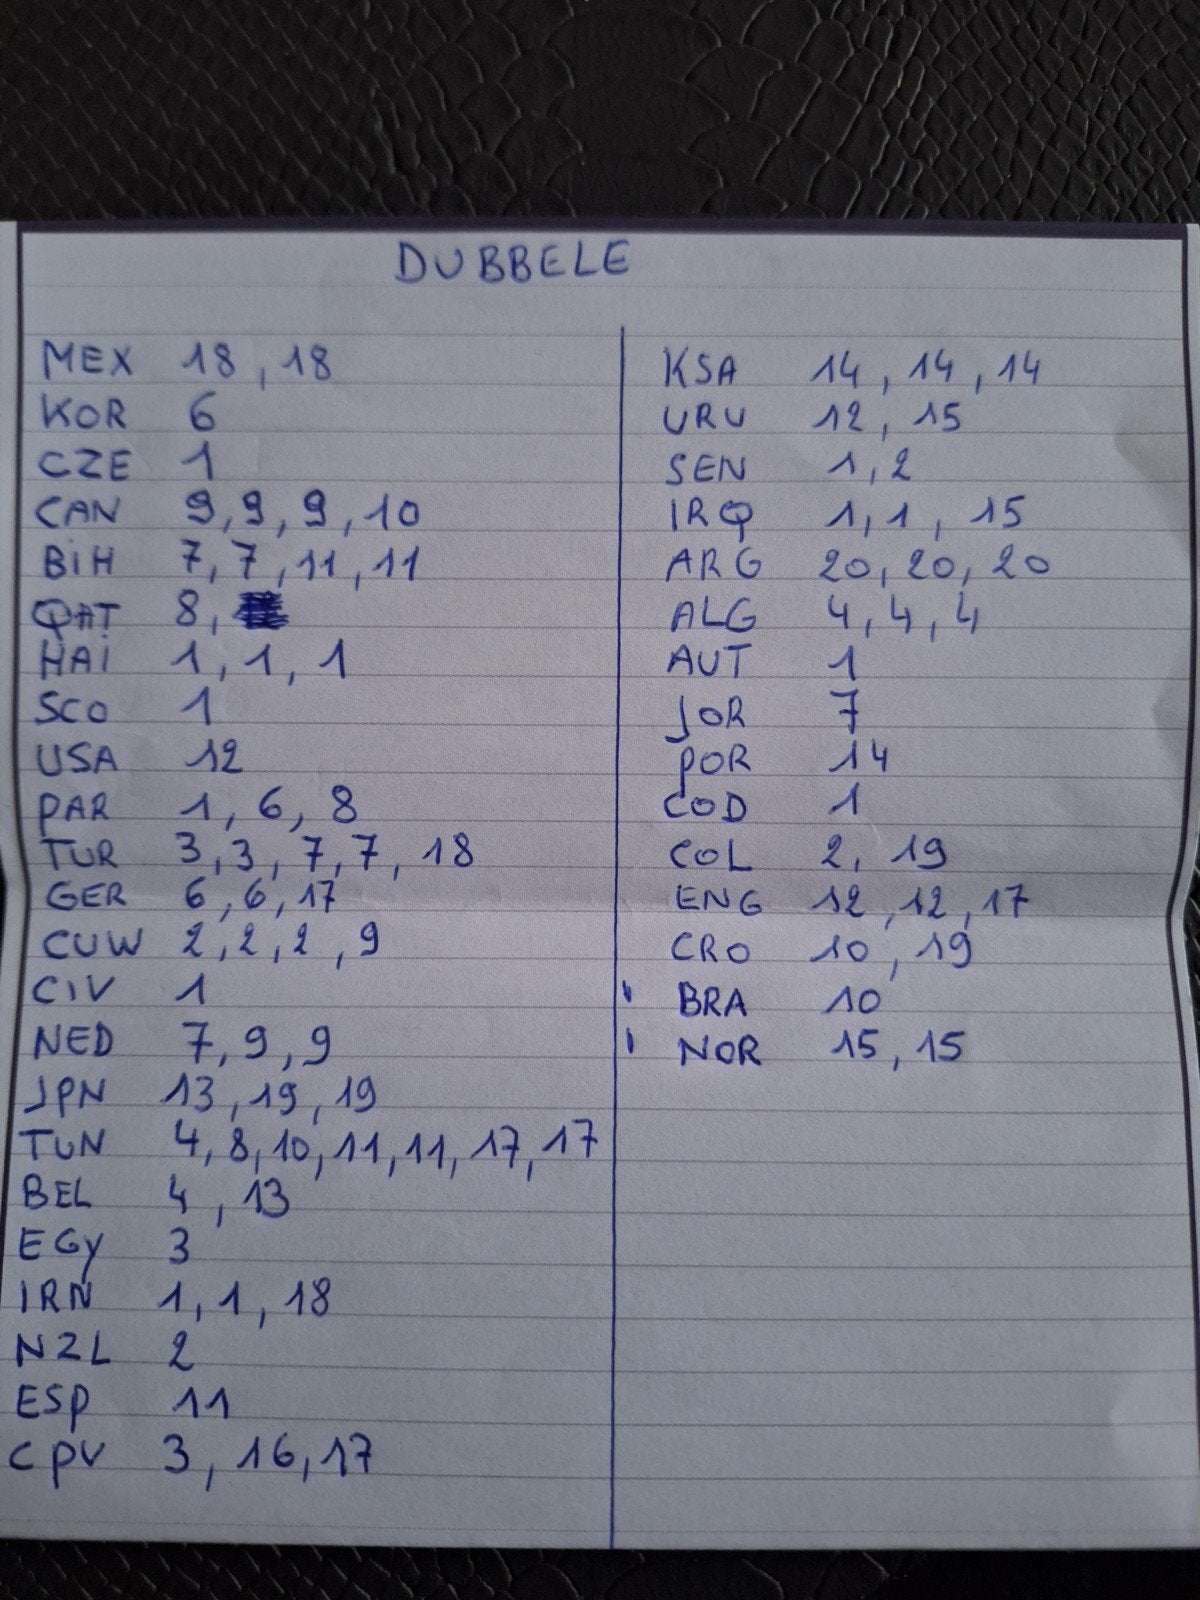 DUBBELE
MEX 18, 18
KOR 6
CZE 1
CAN 9, 9, 9, 10
BiH 7, 7, 11, 11
QAT 8,
HAi 1, 1, 1
SCO 1
USA 12
PAR 1, 6, 8
TUR 3, 3, 7, 7, 18
GER 6, 6, 17
CUW 2, 2, 2, 9
CIV 1
NED 7, 9, 9
JPN 13, 19, 19
TUN 4, 8, 10, 11, 11, 17, 17
BEL 4, 13
EGY 3
IRN 1, 1, 18
NZL 2
ESP 11
CPV 3, 16, 17
KSA 14, 14, 14
URU 12, 15
SEN 1, 2
IRQ 1, 1, 15
ARG 20, 20, 20
ALG 4, 4, 4
AUT 1
JOR 7
POR 14
COD 1
COL 2, 19
ENG 12, 12, 17
CRO 10, 19
BRA 10
NOR 15, 15